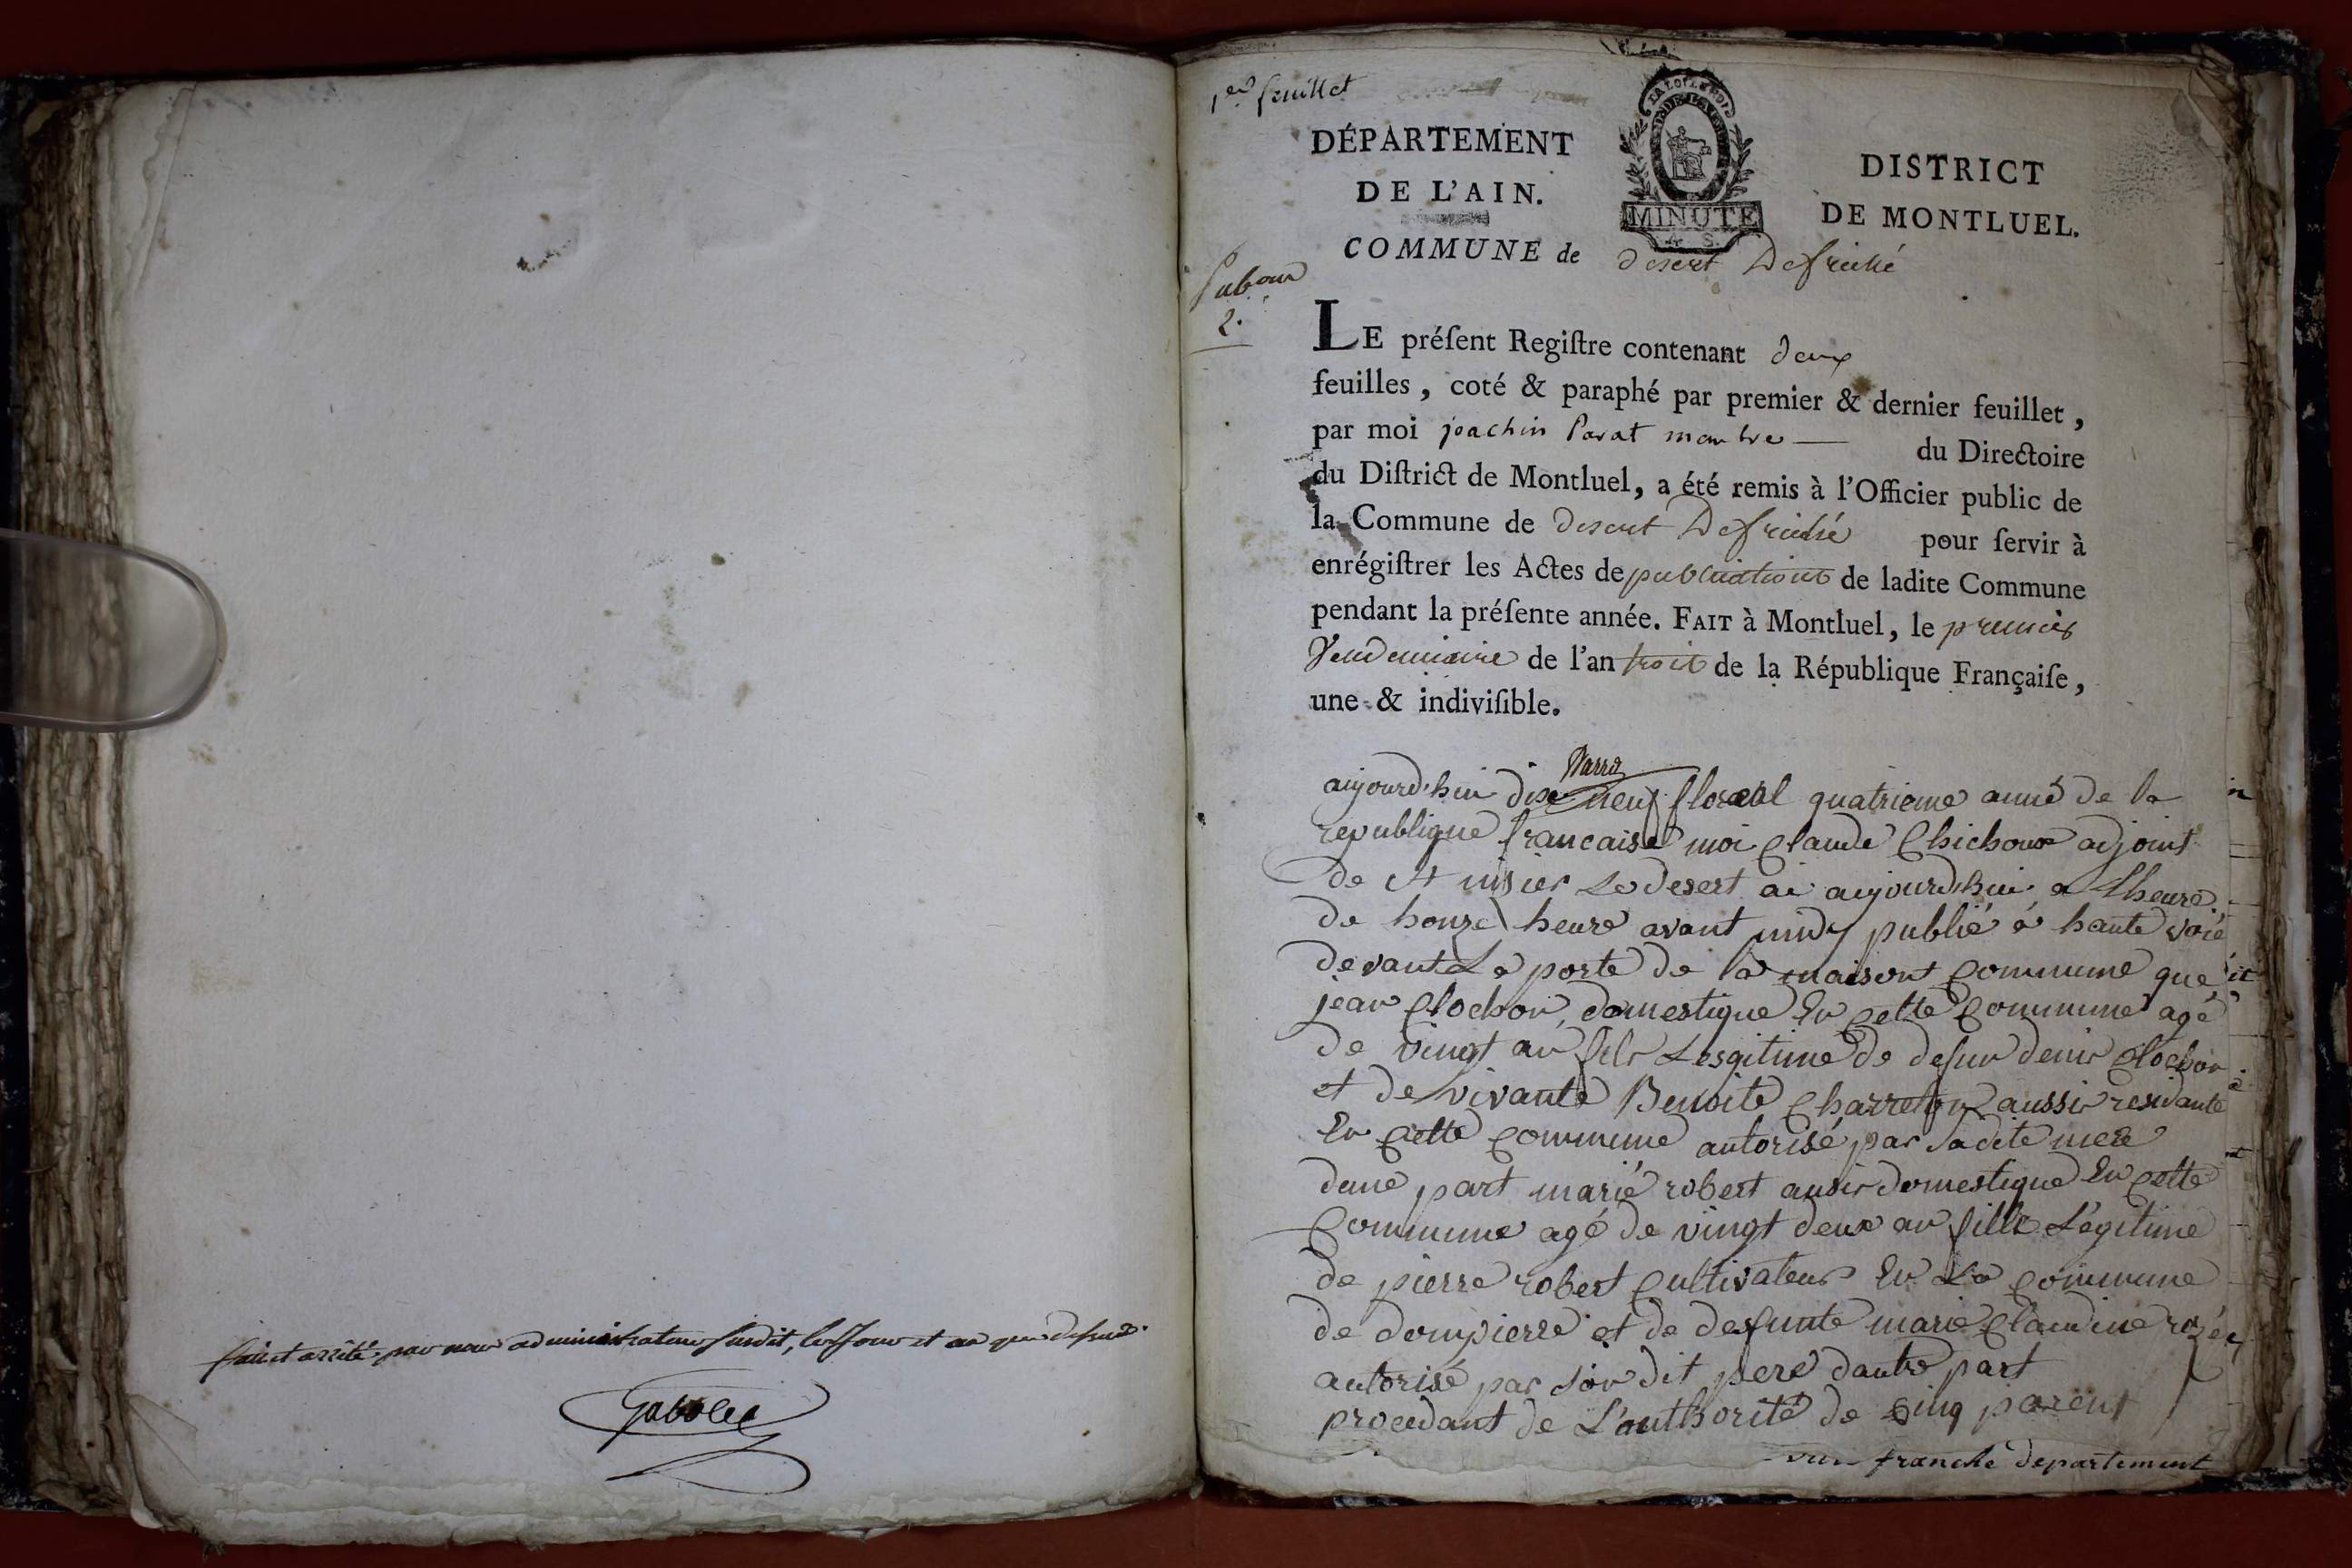 fait et arrêté, par nous administrateur susdit, les jour et an que dessus.
Gabolet
1er feuillet
DÉPARTEMENT
DE L'AIN.
COMMUNE de desert Defriché
LA LOI LE ROI
MINUTE
4 S.
DISTRICT
DE MONTLUEL.
2.
LE préſent Regiſtre contenant deux
feuilles, coté & paraphé par premier & dernier feuillet,
par moi joachin Parat membre du Directoire
du Diſtrict de Montluel, a été remis à l'Officier public de
la Commune de desert Defriché pour ſervir à
enrégiſtrer les Actes de publications de ladite Commune
pendant la préſente année. FAIT à Montluel, le premier
Vendemiaire de l'an trois de la République Françaiſe,
une & indiviſible.
aujourd'hui dixe neuf floreal quatrieme anné de la
republique francaise moi Claude Chichoux adjoint
de st nisier Le desert ai aujourd'hui a Lheure
de honze heure avant midy publié a haute voié
devant La porte de la maisont Commune que
jean Clochon domestique En Cette Commune agé
de vingt an fils Lesgitime de defun denis Clochon
et de vivante Benoite Charreton aussi residante
En Cette Commune autorisé par sadite mere
dune part marie robert ausir domestique En Cette
Commune agé de vingt deux an fille Legitime
de pierre robert Cultivateur En La Commune
de dompierre et de defunte marie Claudine
autorisé par son dit pere dautre part
procedant de L'outhorité de Cinq parent
franche departement